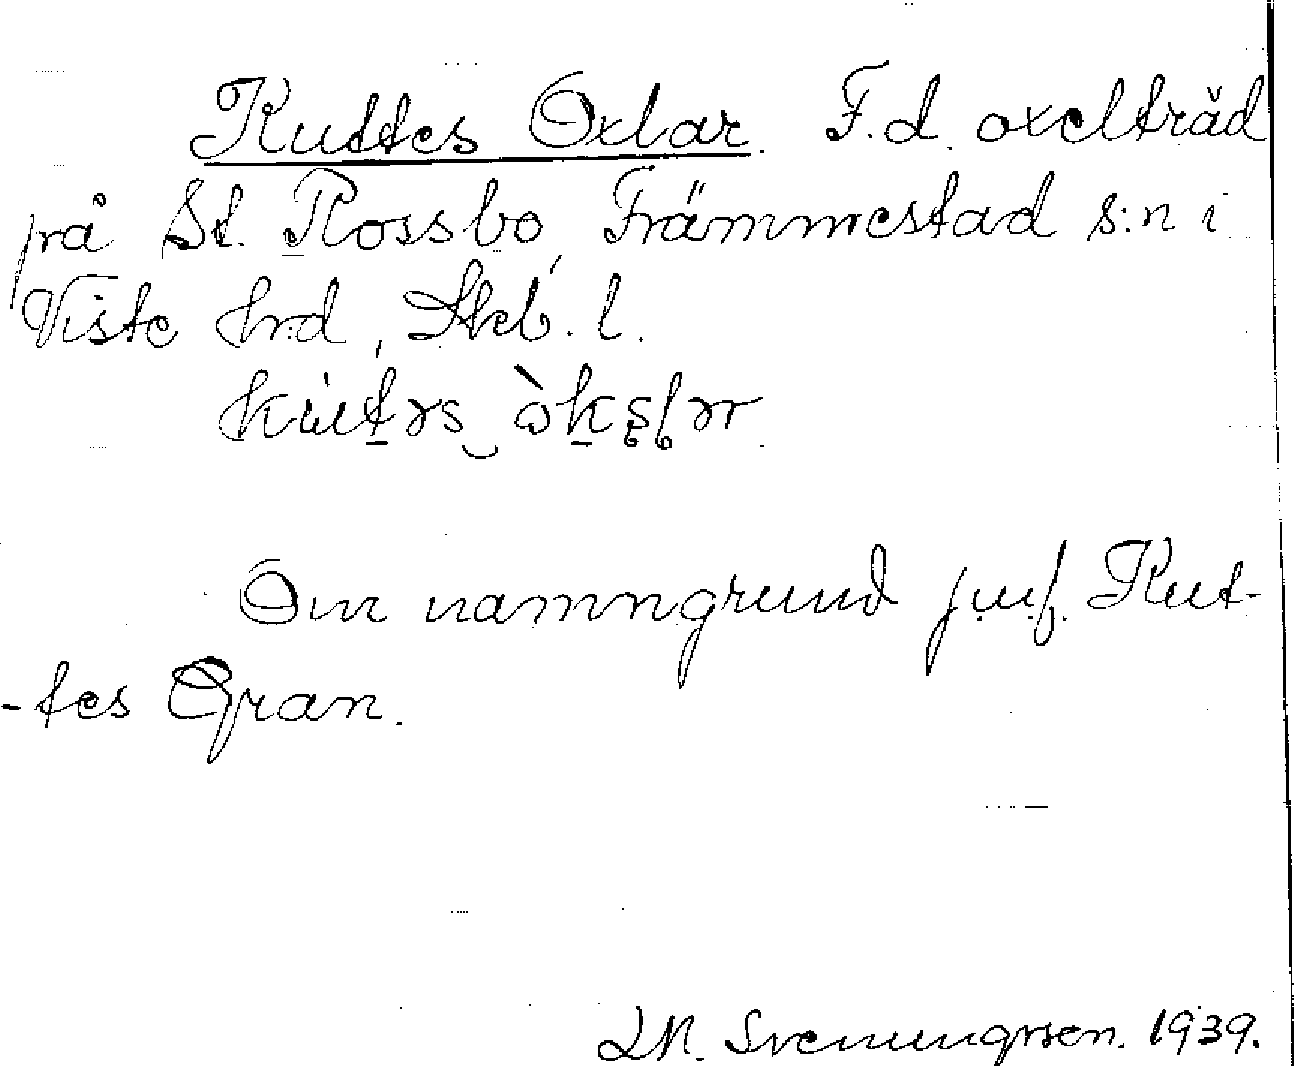 Kuttes Oxlar. F.d. oxelträd
på St. Rossbo, Främmestad s:n i
Viste hrd, Skb. l.
Om namngrund jmf. Kut-
-tes Gran.
Svenungsson. 1939.